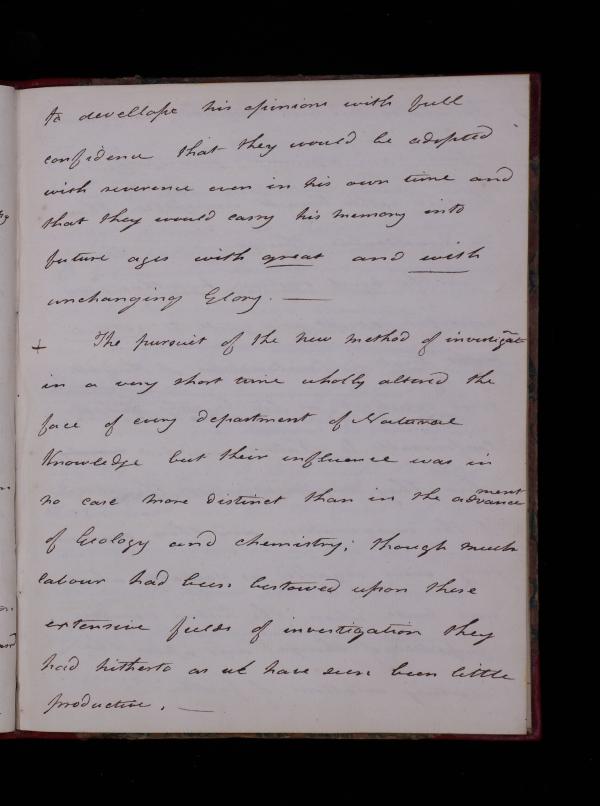 to devellope his opinions with full
confidence that they would be adopted
with reverence even in his own time and
that they would carry his memory into
future ages with great and with
unchanging Glory. —
+ The pursuit of the new method of investigat̃
in a very short time wholly altered the
face of every department of Natural
Knowledge but their influence was in
no case more distinct than in the advancement
of Geology and chemistry; though much
labour had been bestowed upon these
extensive fields of investigation they
had hitherto as we have seen been little
productive. —